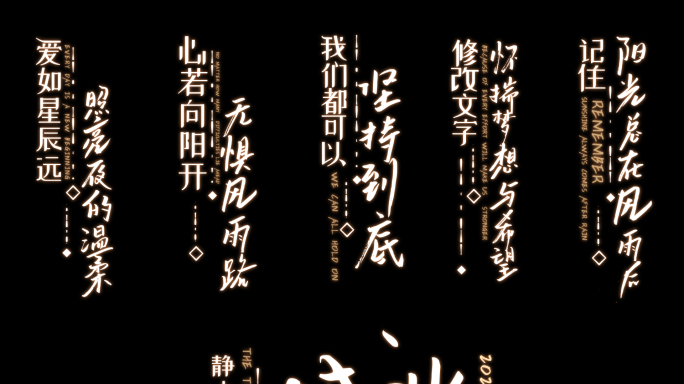 爱如星辰远
EVERY DAY IS A NEW BEGINNING
照亮夜的温柔
心若向阳开
无惧风雨路
我们都可以
WE CAN ALL HOLD ON
坚持到底
修改文字
BECAUSE OF EVERY EFFORT WILL MAKE US STRONGER
怀揣梦想与希望
记住
REMEMBER
SUNSHINE ALWAYS COMES AFTER RAIN
阳光总在风雨后
静
THE
202